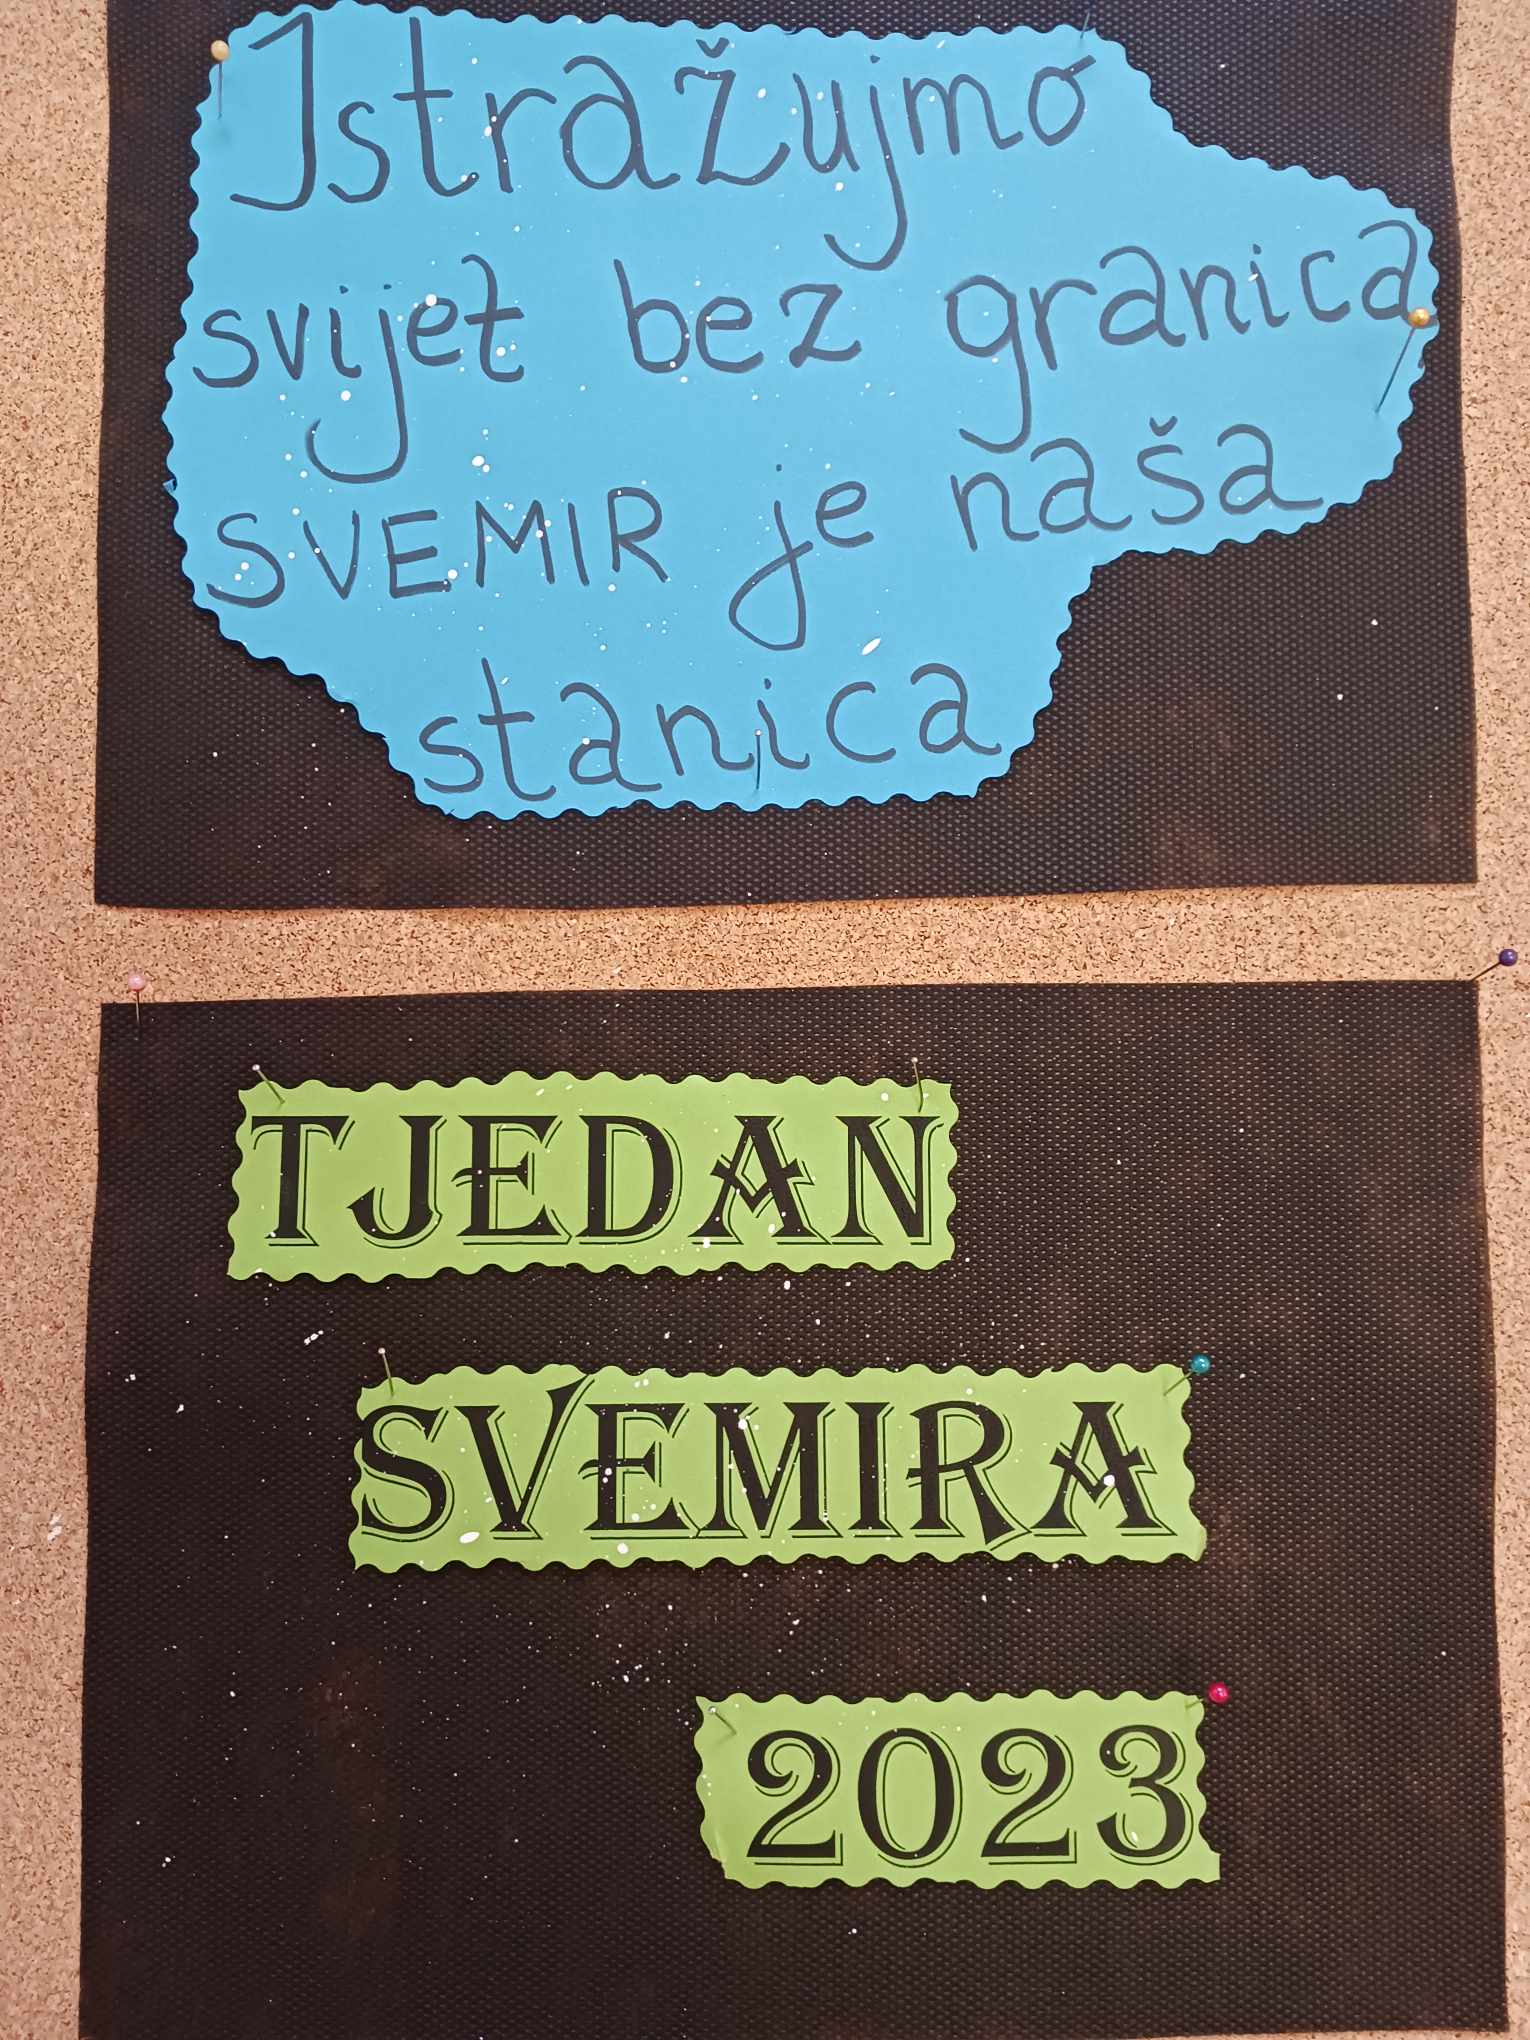 Istražujmo
svijet bez granica
SVEMIR je naša
stanica
TJEDAN
SVEMIRA
2023